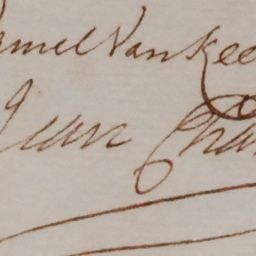 amuel Van Kee
Jean Cha